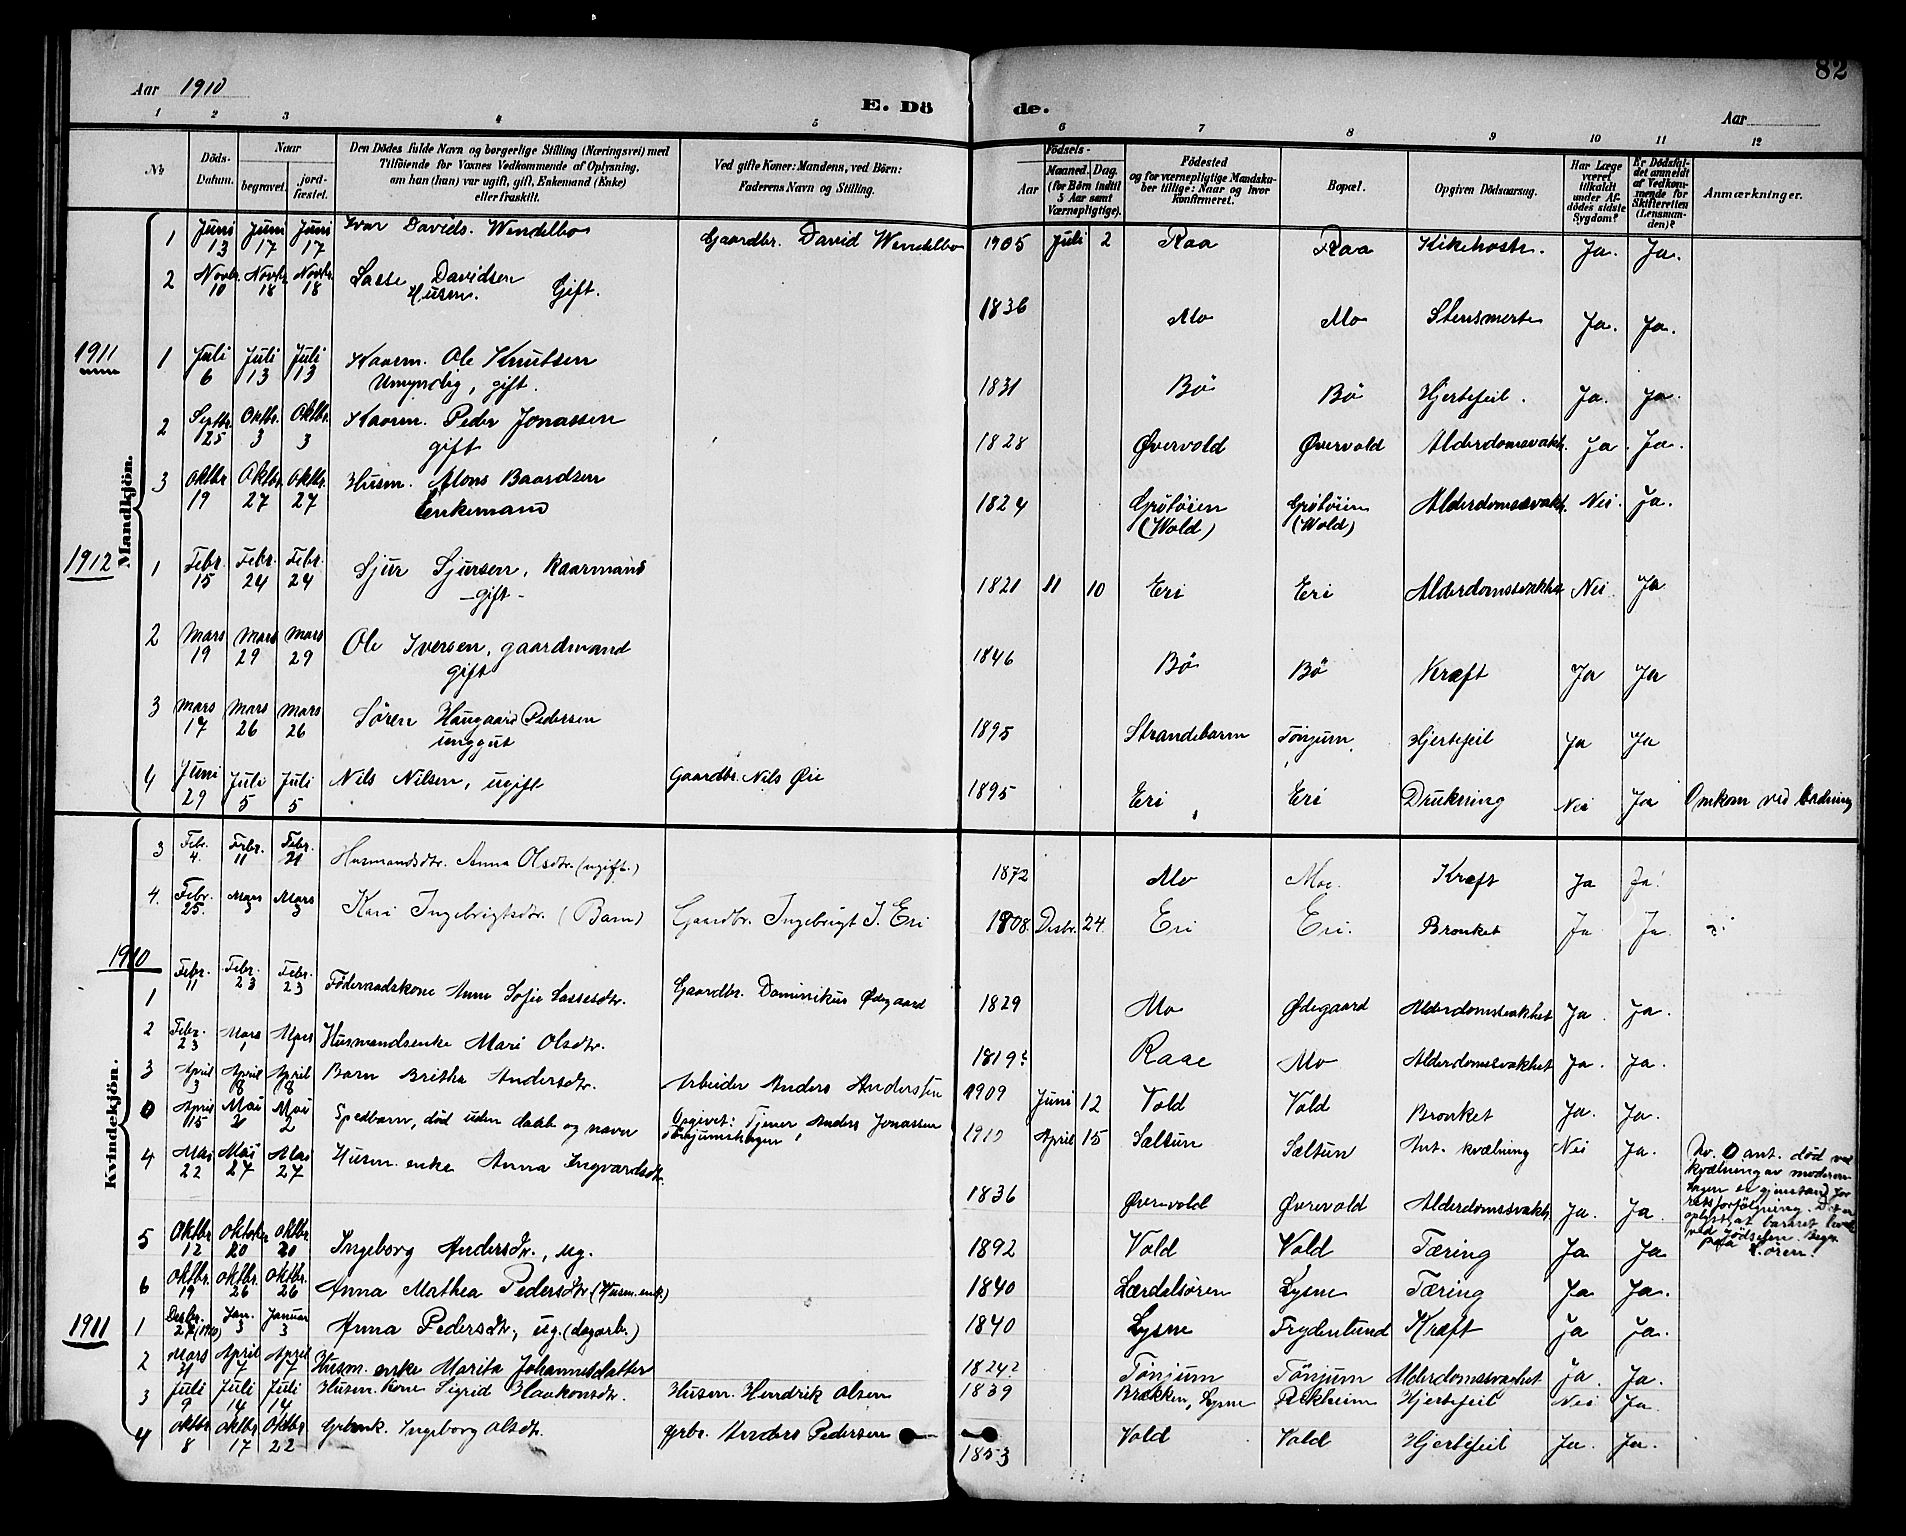 82
Aar 1910
E. Dö de.
Aar
1 2 3 4 5 6 7 8 9 10 11 12
No
Döds-Datum.
Naar
begravet.
jord-fæstet.
Den Dödes fulde Navn og borgerlige Stilling (Næringsvei) med
Tilföiende for Voxnes Vedkommende af Oplysning,
om han (hun) var ugift, gift, Enkemand (Enke)
eller fraskilt.
Ved gifte Koner: Mandens, ved Börn:
Faderens Navn og Stilling.
Födsels-
Aar
Maaned. Dag.
(for Börn indtil
3 Aar samt
Værnepligtige).
Födested
og for værnepligtige Mandska-
ber tillige: Naar og hvor
konfirmeret.
Bopæl.
Opgiven Dödsaarsag.
Har Læge
været
tilkaldt
under Af-
dödes sidste
Sygdom?
Er Dödsfal-
det anmeldt
af Vedkom-
mende for
Skifteretten
(Lensman-
den)?
Anmærkninger.
Mandkjön.
1 Juni 13 Juni 17 Juni 17 Ivar Davids. Wendelbo Gaardbr. David Wendelbo 1905 Juli 2 Raa Raa Kikehoste. Ja. Ja.
2 Novbr. 10 Novbr. 18 Novbr. 18 Lasse Davidsen
Husm. Gift. 1836 Mo Mo Stensmerte Ja. Ja.
1911
1 Juli 6 Juli 13 Juli 13 Kaarm. Ole Knutsen
Umyndig, gift. 1831 Bö Bö Hjertefeil. Ja. Ja.
2 Septbr. 25 Oktbr. 3 Oktbr. 3 Kaarm. Peder Jonassen
gift 1828 Øvervold Øvervold Alderdomssvakh. Ja Ja.
3 Oktbr 19 Oktbr. 27 Oktbr. 27 Husm. Mons Baardsen
Enkemand 1824 Grötöien
(Wold) Grötöien
(Wold) Alderdomssvakh. Nei. Ja.
1912
1 Febr. 15 Febr. 24 Febr. 24 Sjur Sjursen, kaarmand
- gift - 1821 11 10 Eri Eri Alderdomssvakhet Nei Ja
2 Mars 19 Mars 29 Mars 29 Ole Iversen, gaardmand
gift 1846 Bö Bö Kræft Ja Ja
3 Mars 17 Mars 26 Mars 26 Sören Haugaard Pedersen
unggut 1895 Strandebarm Tönjum Hjertefeil Ja Ja
4 Juni 29 Juli 5 Juli 5 Nils Nilsen, ugift Gaardbr. Nils Øie 1895 Eri Eri Drukning Nei Ja Omkom ved badning
Kvindekjön.
3 Febr. 4. Febr. 11 Febr. 21 Husmandsdtr. Anna Olsdtr. (ugift.) 1872 Mo Moe. Kræft Ja Ja.
4. Febr. 25. Mars 3 Mars 3 Kari Ingebrigtsdtr. (Barn) Gaardbr. Ingebrigt J. Eri 1908. Desbr. 24. Eri Eri. Bronket Ja Ja
1910
1 Febr. 11 Febr. 23 Febr. 23 Föderaadskone Anne Sofie Lassesdtr. Gaardbr. Dominikus Ødegaard 1829 Mo Ødegaard Alderdomssvakhet Ja. Ja.
2 Febr. 23 Mars 1 Mars 1 Husmandsenke Mari Olsdtr. 1819? Raae Mo Alderdomssvakhet Ja. Ja.
3 April 3 April 8 April 8 Barn Britha Andersdtr. Arbeider Anders Anderssen 1909 Juni 12 Vold Vold Bronket Ja. Ja.
0 April 15 Mai 2 Mai 2 Spedbarn, död uden daab og navn Opgivet: Tjener Anders Jonassen
1910 April 15 Sæltun Sæltun Ant. kvælning Nei Ja. Nr. 0 ant. død ved
kvælning av moderen
Sagen er gjenstand for
retsforfölgning. Det er
oplyst, at barnet levde
ved födselen.
4 Mai 22 Mai 27 Mai 27 Husm. enke Anna Ingvardsdtr. 1836 Øvrevold Øvrevold Alderdomssvakh. Ja. Ja.
5 Oktbr 12 Oktober 20 Oktbr 20 Ingeborg Andersdtr., ug. 1892 Vold Vold Tæring Ja Ja
6 Oktbr. 19 Oktbr. 26 Oktbr. 26 Anna Mathea Pedersdtr (Husm. enk.) 1840 Lærdalsören Lysne Tæring Ja Ja.
1911
1 Desbr. 27 (1910) Jan. 3 Januar 3 Anna Pedersdtr., ug. (dagarb.) 1840 Lysne Frydenlund Kræft Ja Ja.
2 Mars 31 April 7 April 7 Husm. enke Marita Johannesdatter 1824? Tönjum Tönjum Alderdomssvakhet Ja. Ja.
3 Juli 9 Juli 14 Juli 14 Husm. kone Sigrid Haakonsdtr. Husm. Hendrik Olsen 1839 Brækken, Lysne Rikheim Hjertefeil Nei Ja.
4 Oktbr 8 Oktbr. 17 Oktbr 22 Grbrk. Ingeborg Olsdtr. Grbr. Anders Pedersen 1853 Vold Vold Hjertefeil Ja. Ja.